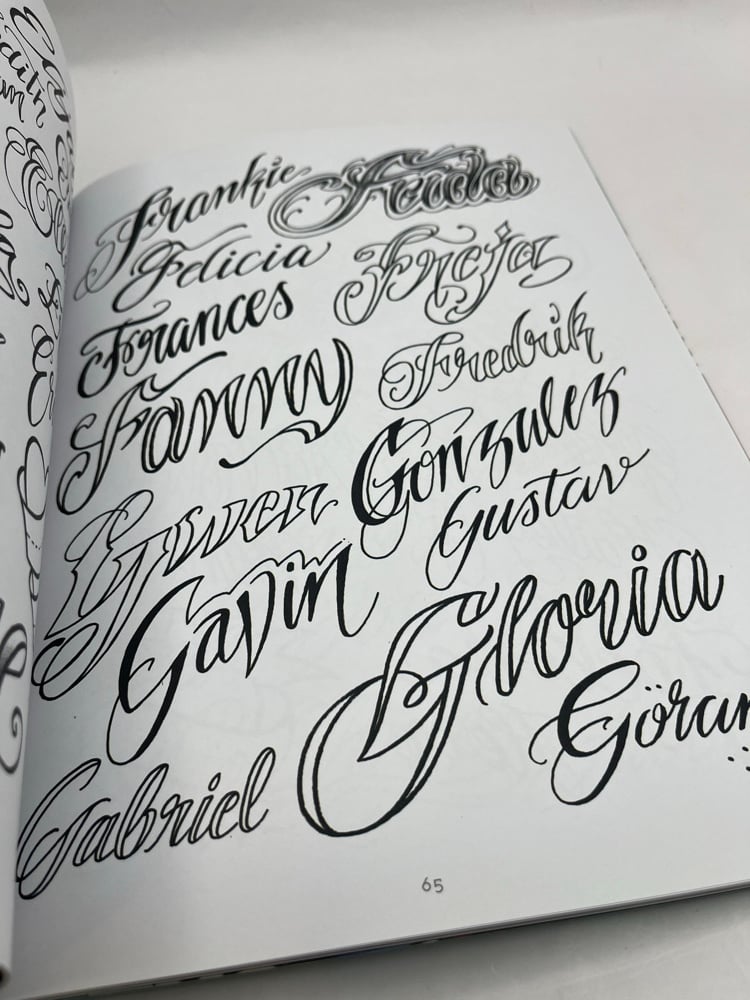 Frankie Frida
Felicia Freja
Frances
Fanny Fredrik
Gwen Gonzalez
Gavin Gustav
Gloria
Göran
Gabriel
65